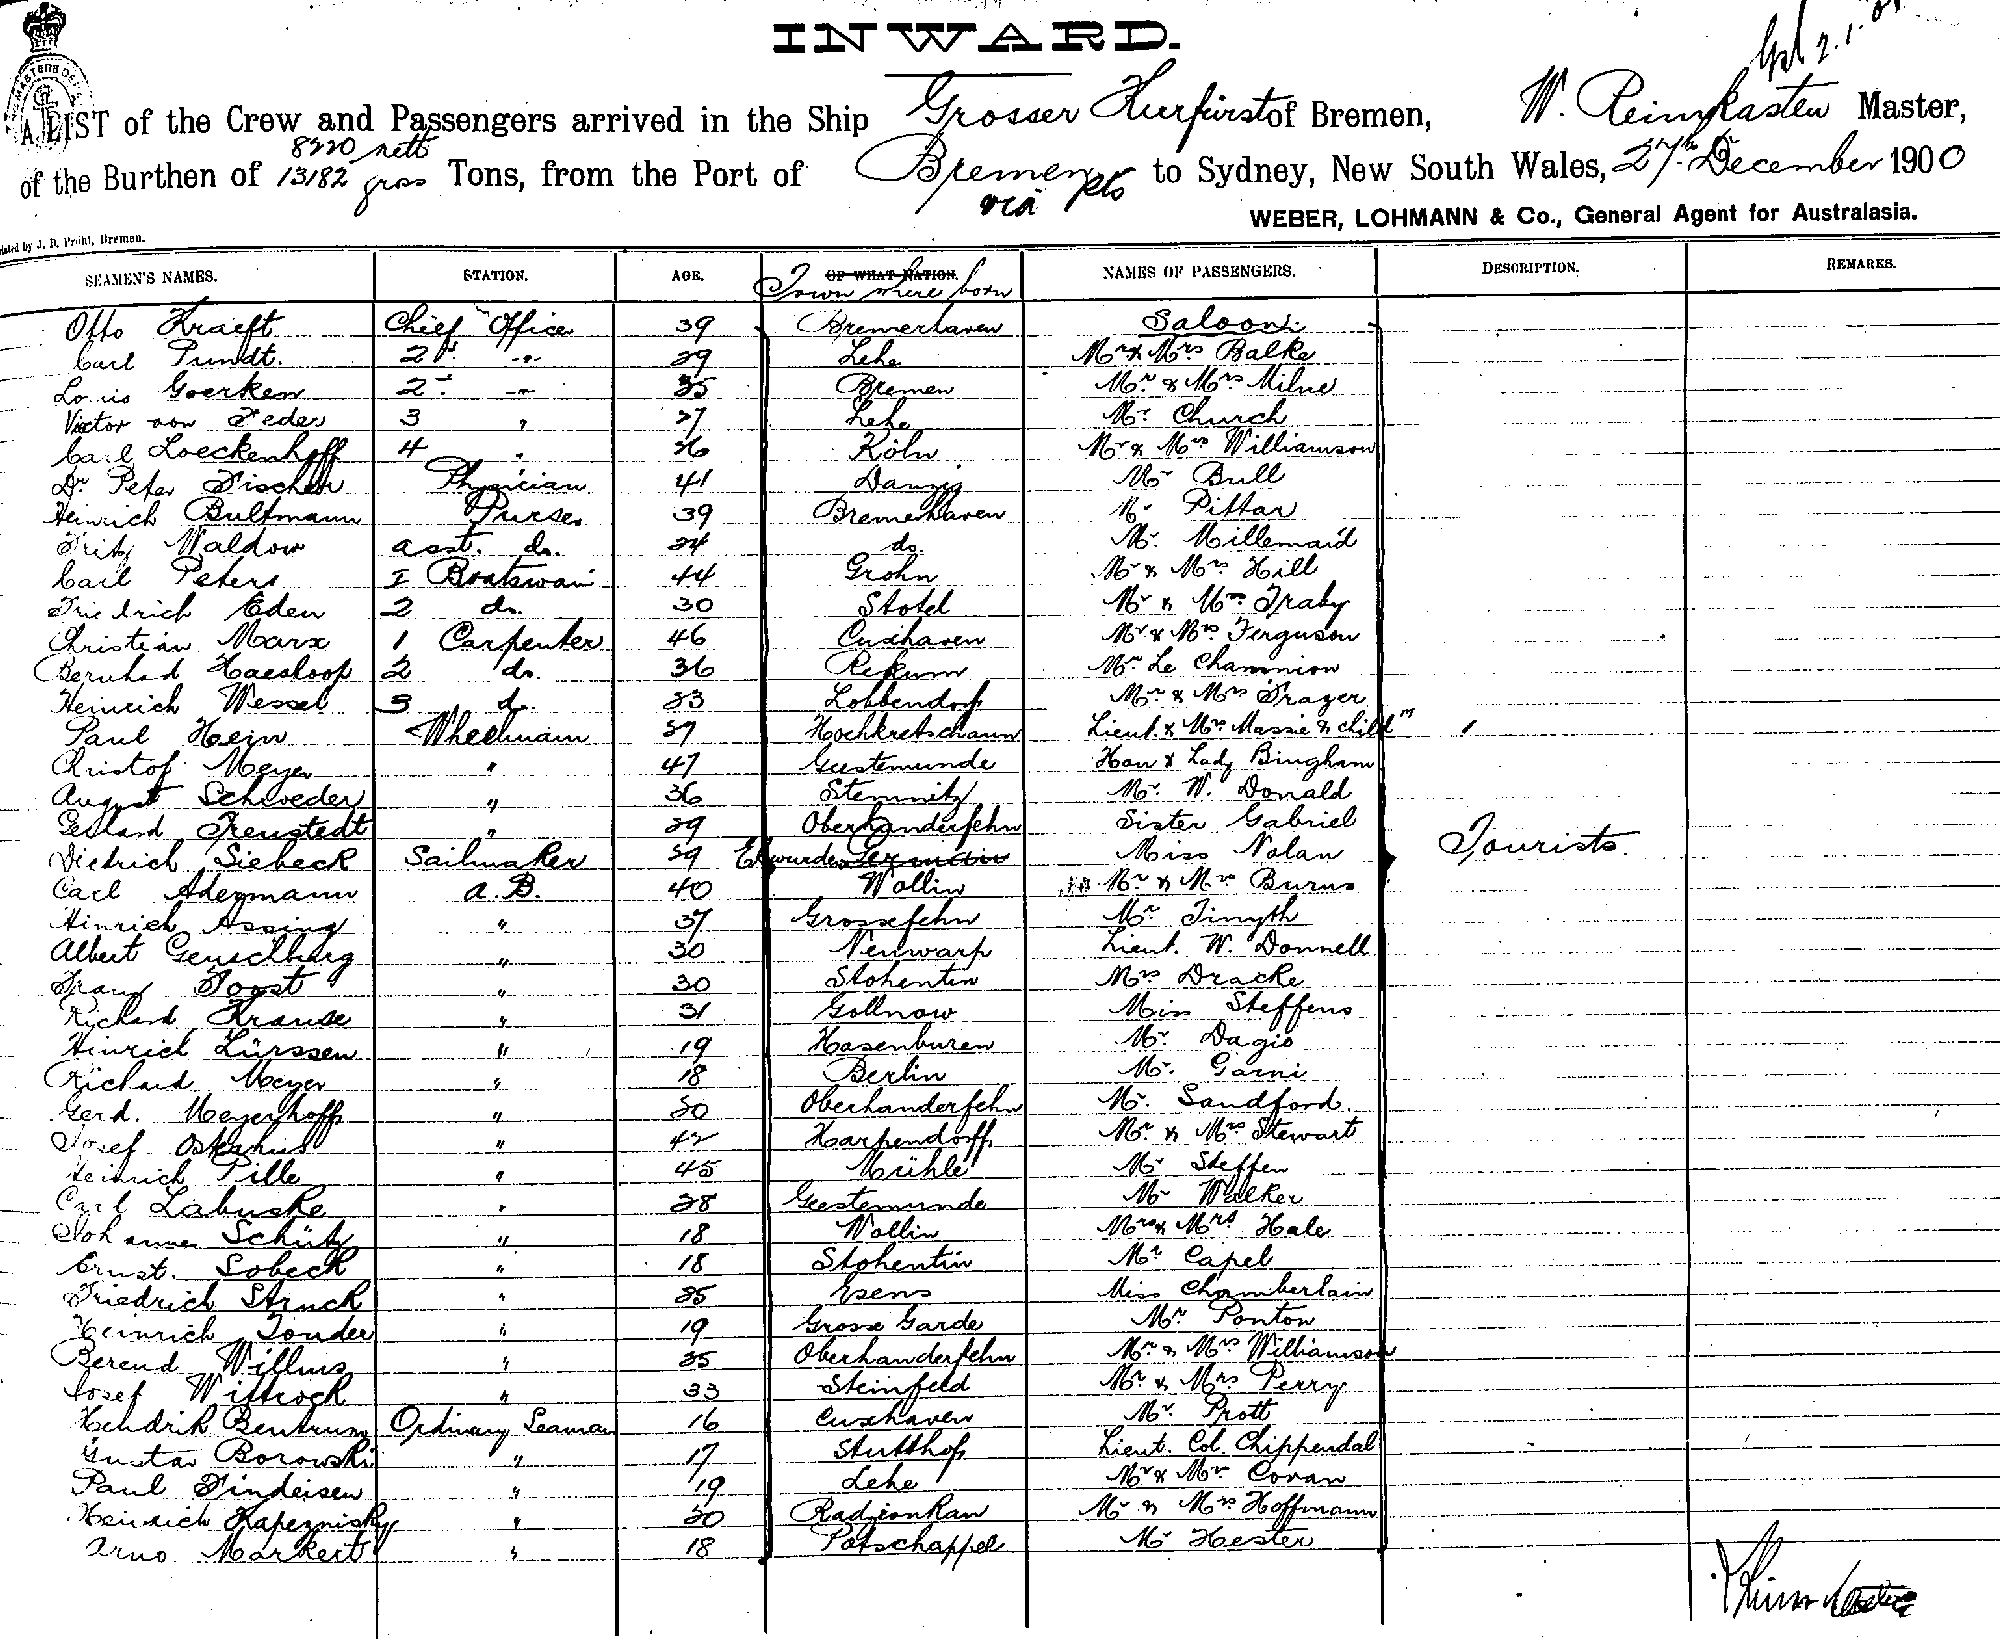 INWARD.
A LIST of the Crew and Passengers arrived in the Ship Grosser Kurfürst of Bremen, W. Reimkasten Master,
8220 nett
of the Burthen of 13182 gross Tons, from the Port of Bremen via pts to Sydney, New South Wales, 27th December 1900
WEBER, LOHMANN & Co., General Agent for Australasia.
SEAMEN'S NAMES. STATION. AGE. OF WHAT NATION. NAMES OF PASSENGERS. DESCRIPTION. REMARKS.
Town where born
Otto Kraeft Chief Office 39 Bremerhaven Saloon:
Carl Pundt. 2t " 29 Lehe Mr & Mrs Balke
Louis Goerken 2. " 35 Bremen Mr. & Mrs Milne
Victor von Feder 3 " 27 Lehe Mr. Church
Carl Loeckenhoff 4 " 26 Köln Mr & Mrs Williamson
Dr Peter Fischer Physician 41 Danzig Mr Bull
Heinrich Bultmann Purser 39 Bremerhaven Mr Pittar
Fritz Waldow asst. do. 24 do. Mr. Millemaid
Carl Peters I Boatswain 44 Grohn Mr & Mrs Hill
Friedrich Eden 2 do. 30 Stotel Mr & Mrs Fraby
Christian Marx 1 Carpenter 46 Cuxhaven Mr & Mrs Ferguson
Bernhard Haesloop 2 do. 36 Rekum Mr. Le Channion
Heinrich Wessel 3 do. 23 Lobbendorf Mr & Mrs Frazer
Paul Hein Wheelmann 27 Hochkretscham Lieut. & Mrs Massie & child
Christof Meyer " 47 Geestemunde Hon & Lady Bingham
August Schroeder " 36 Stemnitz Mr. W. Donald
Gerhard Freustedt " 29 Oberhanderfehn Sister Gabriel
Dietrich Siebeck Sailmaker 29 Miss Nolan Tourists.
Carl Adermann A.B. 40 Wollin Mr & Mrs Burns
Hinrich Assing " 37 Grossefehn Mr. Smyth
Albert Genschberg " 30 Neuwarp Lieut. W. Donnell
Franz Joost " 30 Stohentin Mrs Dracke
Richard Krause " 31 Gollnow Miss Steffens
Hinrich Lürssen " 19 Hasenburen Mr. Dagio
Richard Meyer " 18 Berlin Mr. Garni
Gerd. Meyerhoff " 30 Oberhanderfehn Mr. Sandford
Josef " 42 Harpendorff Mr. & Mrs Stewart
Heinrich Pille " 45 Mühle Mr Steffen
Carl Labuske " 28 Geestemunde Mr Walker
Johannes Schütz " 18 Wollin Mr & Mrs Hale
Ernst. Lobeck " 18 Stohentin Mr Capel
Friedrich Struck " 25 Esens Miss Chamberlain
Heinrich Tonder " 19 Grosse Garde Mr Ponton
Berend Willms " 25 Oberhanderfehn Mr. & Mrs Williamson
Josef Wittrock " 33 Steinfeld Mr. & Mrs Perry
Hendrik Bentrum Ordinary Seaman 16 Cuxhaven Mr. Prott
Gustav Borowski " 17 Stutthof Lieut. Col. Chippendal
Paul Findeisen " 19 Lehe Mr & Mrs Covan
Heinrich Kapeznisky " 20 Radzionkau Mr & Mrs Hoffmann
Arno Markert " 18 Potschappel Mr Hester